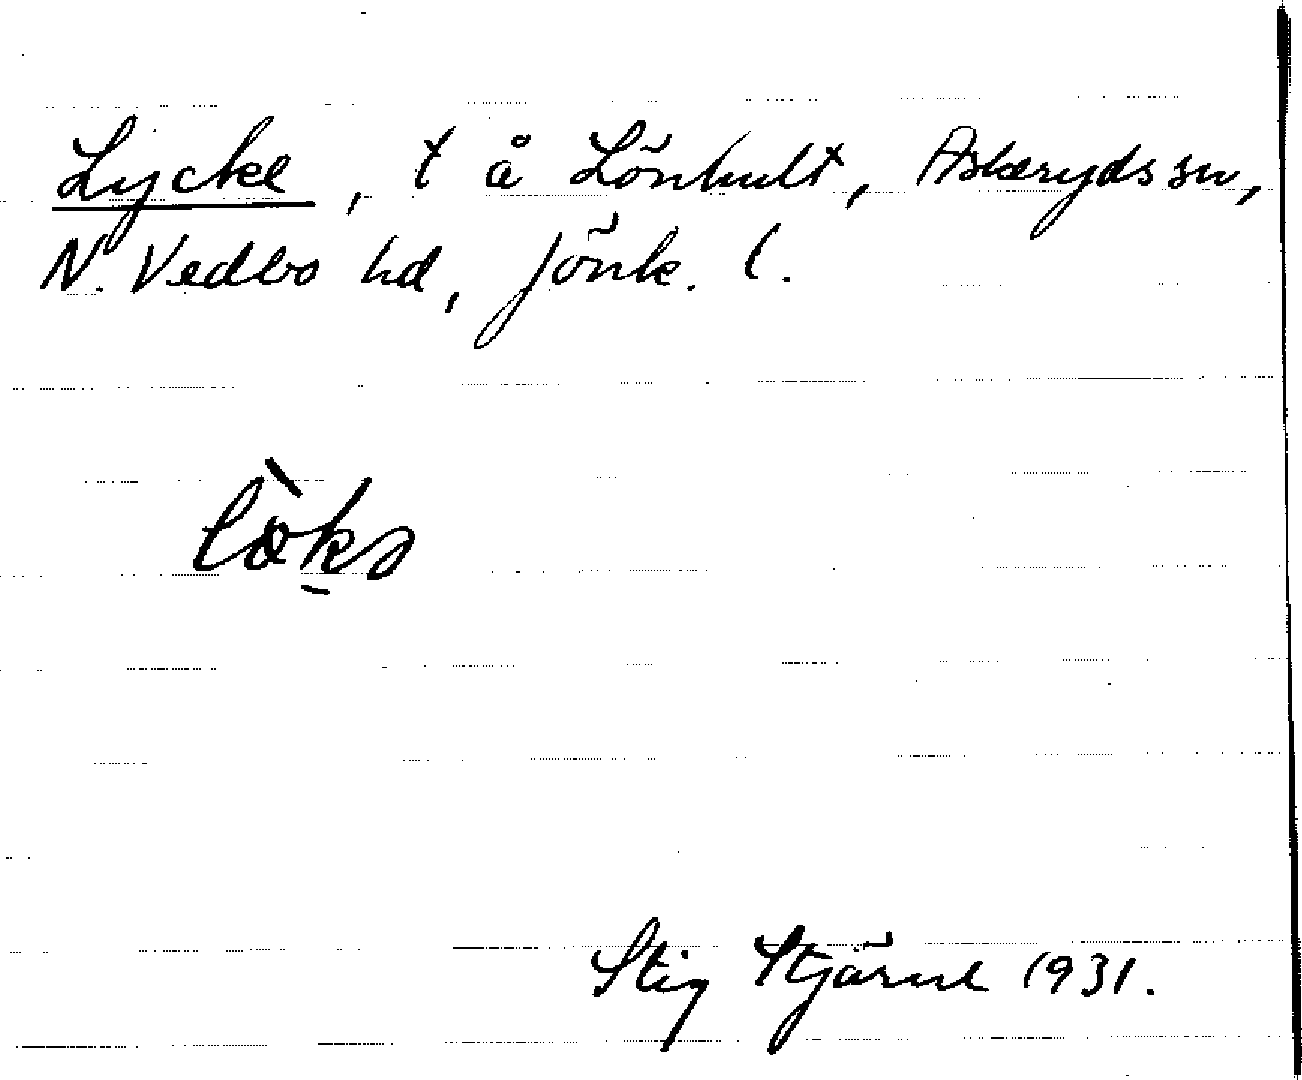 Lycke, t å Lönhult, Askeryds sn,
N. Vedbo hd, Jönk. l.
lö̀k̠ə
Stig Stjärne 1931.